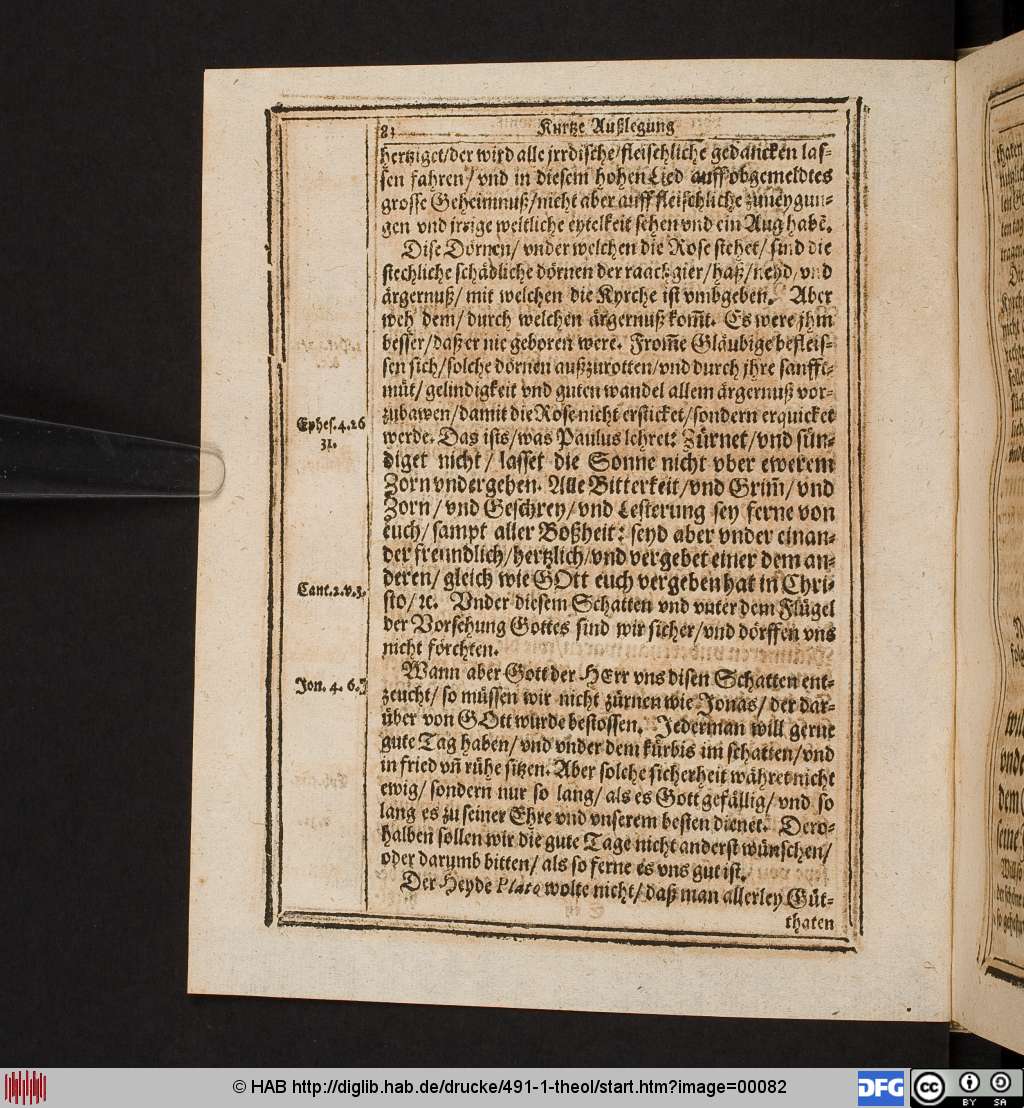 Kurtze Außlegung
hertziget/der wird alle jrrdische/fleischliche gedancken las-
sen fahren/ vnd in diesem hohen Lied auff obgemeldtes
grosse Geheimnuß/nicht aber auff fleischliche zuneygun-
gen vnd jrrige weltliche eytelkeit sehen vnd ein Aug habẽ.
Dise Dörnen/ vnder welchen die Rose stehet/ sind die
stechliche schädliche dörnen der raachgier/haß/neyd/vnd
ärgernuß/ mit welchen die Kyrche ist vmbgeben. Aber
weh dem/ durch welchen ärgernuß kom̃t. Es were jhm
besser/daß er nie geboren were. From̃e Gläubige befleis-
sen sich/solche dörnen außzurotten/vnd durch jhre sanfft-
müt/gelindigkeit vnd guten wandel allem ärgernuß vor-
zubawen/damit die Rose nicht ersticket/sondern erquicket
Ephes.4.26
31.
werde. Das ists/was Paulus lehret: Zürnet/vnd sün-
diget nicht/ lasset die Sonne nicht vber ewerem
Zorn vndergehen. Alle Bitterkeit/vnd Grim̃/ vnd
Zorn/vnd Geschrey/vnd Lesterung sey ferne von
euch/sampt aller Boßheit: seyd aber vnder einan-
der freundlich/hertzlich/vnd vergebet einer dem an-
deren/ gleich wie GOtt euch vergeben hat in Chri-
Cant.2.v.3.
sto/ꝛc. Vnder diesem Schatten vnd vnter dem Flügel
der Vorsehung Gottes sind wir sicher/vnd dörffen vns
nicht förchten.
Wann aber Gott der HErr vns disen Schatten ent-
Jon. 4. 6.
zeucht/ so müssen wir nicht zürnen wie Jonas/ der dar-
über von GOtt wurde bestossen. Jederman will gerne
gute Tag haben/ vnd vnder dem kürbis im schatten/vnd
in fried vñ rühe sitzen. Aber solche sicherheit währet nicht
ewig/ sondern nur so lang/ als es Gott gefällig/ vnd so
lang es zu seiner Ehre vnd vnserem besten dienet. Dero-
halben sollen wir die gute Tage nicht anderst wünschen/
oder darumb bitten/ als so ferne es vns gut ist.
Der Heyde Plato wolte nicht/ daß man allerley Güt-
thaten
© HAB http://diglib.hab.de/drucke/491-1-theol/start.htm?image=00082
DFG
cc
BY SA